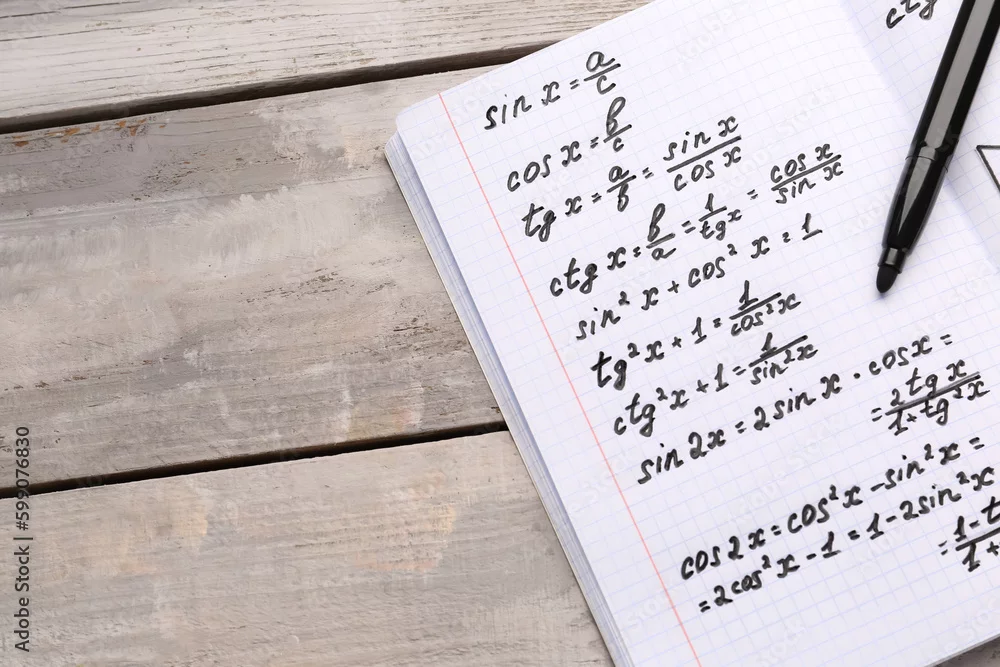 sin x = a/c
cos x = b/c
tg x = a/b = sin x/cos x
ctg x = b/a = 1/tg x = cos x/sin x
sin² x + cos² x = 1
tg² x + 1 = 1/cos² x
ctg² x + 1 = 1/sin² x
sin 2x = 2 sin x · cos x =
= 2 tg x/1 + tg² x
cos 2x = cos² x - sin² x =
= 2 cos² x - 1 = 1 - 2 sin² x
= 1 - t/1 +
ctg
Adobe Stock | #599076830